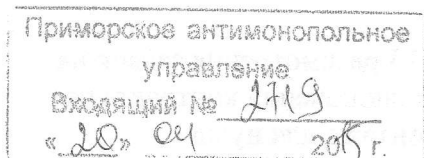 Приморское антимонопольное
управление
Входящий № 2719
«20» 04 2015 г.